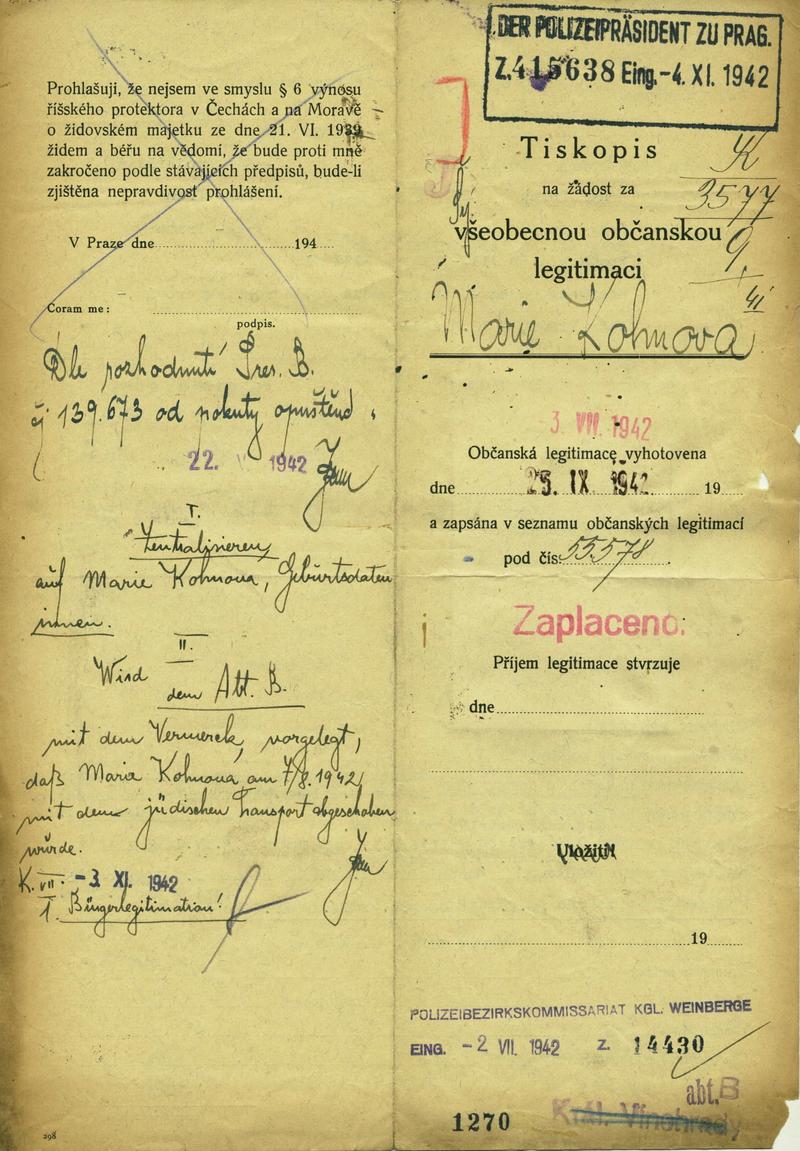 Prohlašuji, že nejsem ve smyslu § 6 výnosu
říšského protektora v Čechách a na Moravě
o židovském majetku ze dne 21. VI. 1939
židem a béřu na vědomí, že bude proti mně
zakročeno podle stávajících předpisů, bude-li
zjištěna nepravdivost prohlášení.
V Praze dne 194
Coram me:
podpis.
Dle rozhodnutí Pres. B.
čj 139.673 od pokuty opuštěno
22. 1942
I.
Zentralisieren
auf Marie Kohnova, Geburtsdaten
innen.
II.
Wird
dem Abt. B.
mit dem Vermerek vorgelegt,
daß Maria Kohnová am 7/8. 1942
mit dem jüdischen Transport abgeschoben
würde.
K. VII. -3 XI. 1942
1. Bürgerlegitimation!
298
DER POLIZEIPRÄSIDENT ZU PRAG.
Z. 415638 Eing. -4. XI. 1942
Tiskopis
K
na žádost za
3577
všeobecnou občanskou
legitimaci
Marie Kohnová
3 VIII 1942
Občanská legitimace vyhotovena
dne 25. IX. 1942. 19
a zapsána v seznamu občanských legitimací
pod čís. 55578
Zaplaceno.
Příjem legitimace stvrzuje
dne
19
POLIZEIBEZIRKSKOMMISSARIAT KGL. WEINBERGE
EING. -2 VII. 1942 Z. 14430
abt. B
1270 Král. Vinohrady